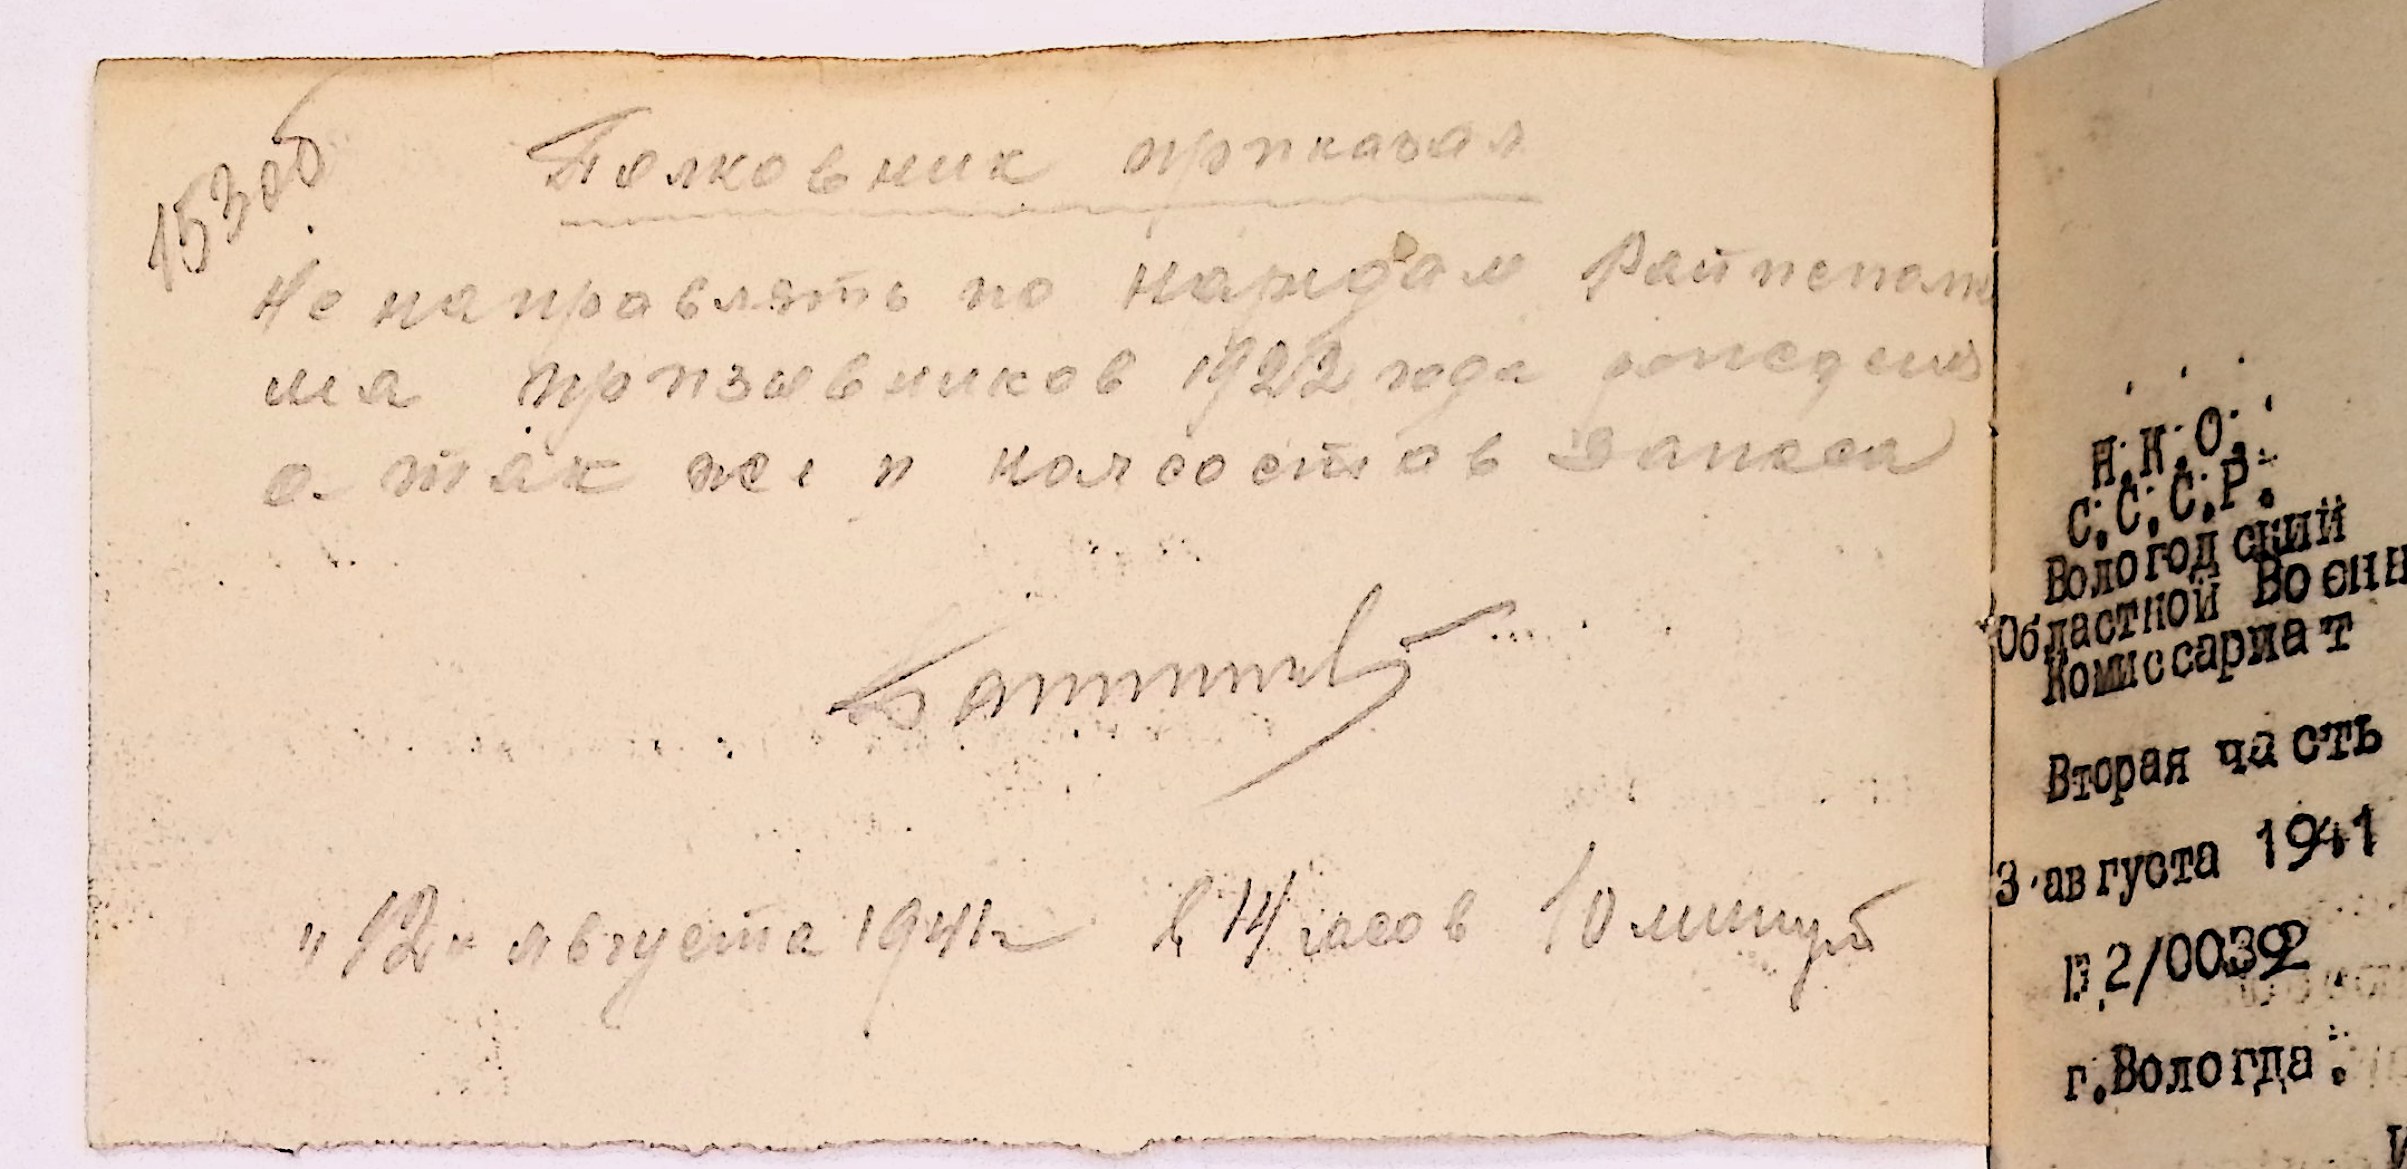 1530б
Полковник приказал
Не направлять по нарядам Райисполко
ма призывников 1922 года рождения
а так же и начсостав запаса
"12" августа 1941 г в 14 часов 10 минут
Н.К.О.
С.С.С.Р.
Вологодский
Областной Воєнн
Комиссариат
Вторая часть
3 августа 1941
2/0039
г.Вологда.